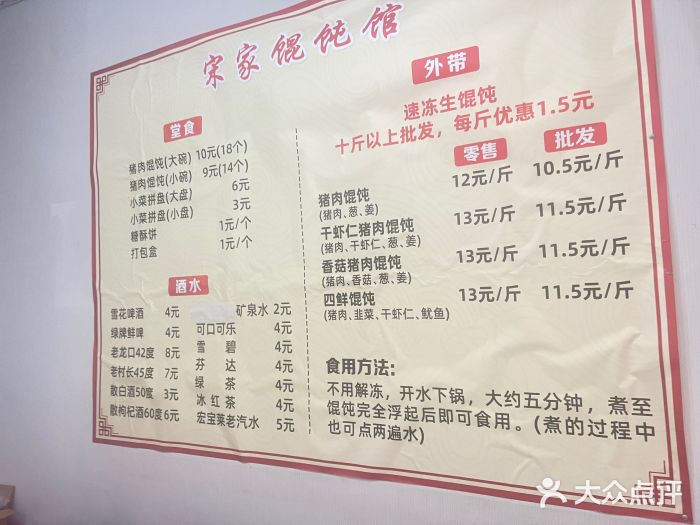 宋家馄饨馆
堂食
猪肉馄饨(大碗) 10元(18个)
猪肉馄饨(小碗) 9元(14个)
小菜拼盘(大盘) 6元
小菜拼盘(小盘) 3元
糖酥饼 1元/个
打包盒 1元/个
酒水
雪花啤酒 4元
绿牌鲜啤 4元
老龙口42度 8元
老村长45度 7元
散白酒50度 3元
散枸杞酒60度 6元
矿泉水 2元
可口可乐 4元
雪碧 4元
芬达 4元
绿茶 4元
冰红茶 4元
宏宝莱老汽水 5元
外带
速冻生馄饨
十斤以上批发，每斤优惠1.5元
零售 批发
猪肉馄饨 12元/斤 10.5元/斤
(猪肉、葱、姜)
干虾仁猪肉馄饨 13元/斤 11.5元/斤
(猪肉、干虾仁、葱、姜)
香菇猪肉馄饨 13元/斤 11.5元/斤
(猪肉、香菇、葱、姜)
四鲜馄饨 13元/斤 11.5元/斤
(猪肉、韭菜、干虾仁、鱿鱼)
食用方法:
不用解冻，开水下锅，大约五分钟，煮至
馄饨完全浮起后即可食用。(煮的过程中
也可点两遍水)
大众点评